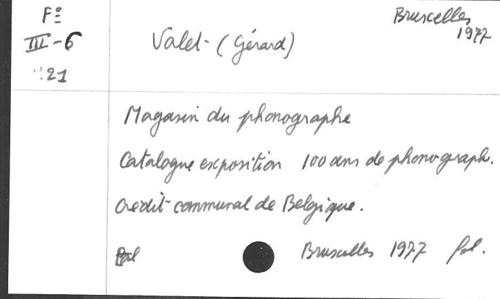 Fº
III-6
:21
Valet (Gérard)
Bruxelles
1977
Magasin du phonographe
Catalogue exposition 100 ans de phonograph.
Crédit communal de Belgique.
Bruxelles 1977 fol.